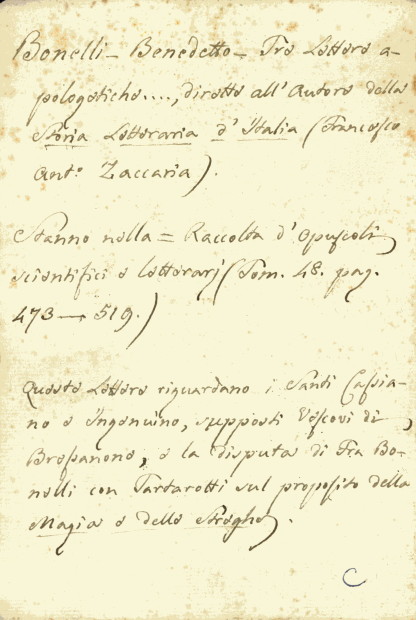 Bonelli - Benedetto - Tre Lettere a-
pologetiche...., dirette all' Autore della
Storia Letteraria d' Italia (Francesco
Ant.o Zaccaria).
Stanno nella = Raccolta d' opuscoli
scientifici e letterarj (Tom. 48. pag.
473 — 519.)
Queste Lettere riguardano i Santi Cassia-
no e Ingenuino, supposti Vescovi di
Bressanone, e la disputa di Fra Bo-
nelli con Tartarotti sul proposito della
Magia e delle Streghe.
C